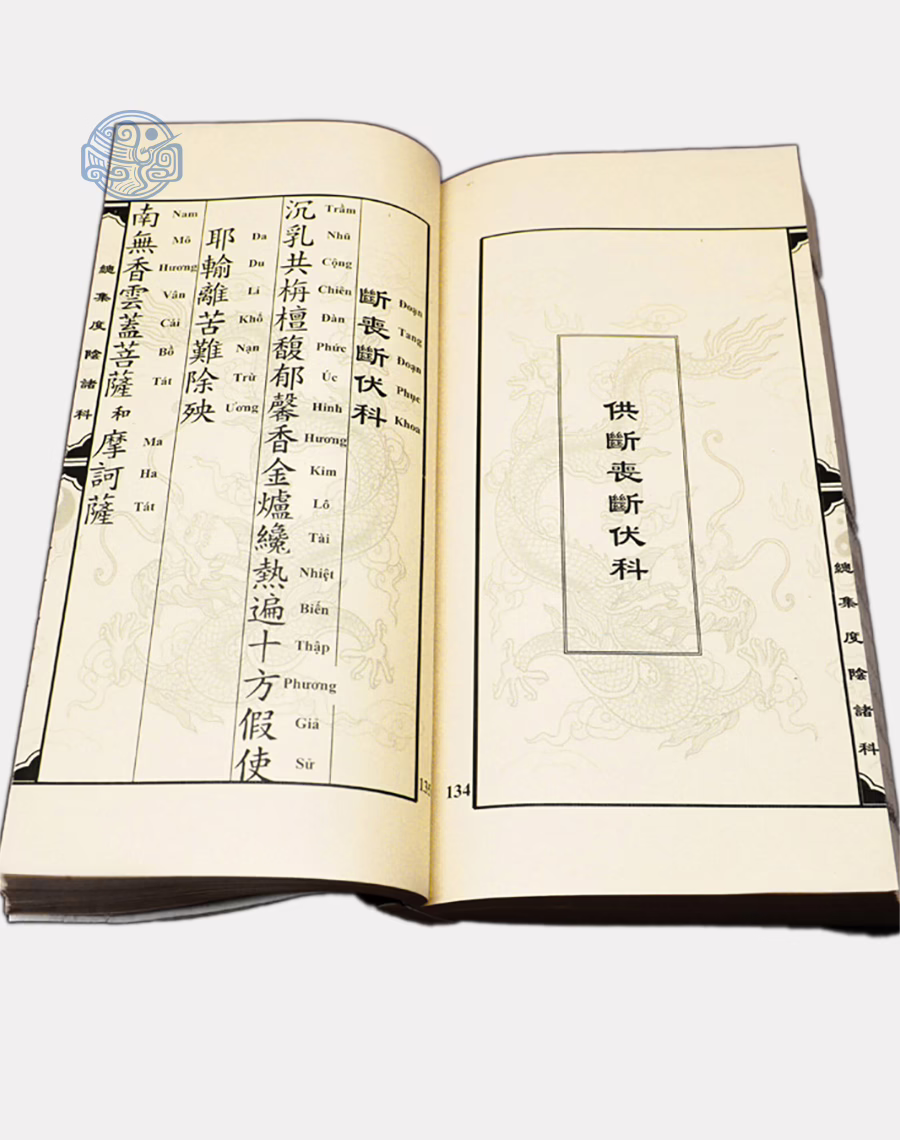 供斷喪斷伏科
總集度陰諸科
134
斷喪斷伏科
Đoạn Tang Đoạn Phục Khoa
沉乳共栴檀馥郁馨香金爐纔熱遍十方假使
Trầm Nhũ Cộng Chiên Đàn Phức Úc Hinh Hương Kim Lô Tài Nhiệt Biến Thập Phương Giả Sử
耶輸離苦難除殃
Da Du Lí Khổ Nạn Trừ Ương
南無香雲蓋菩薩和摩訶薩
Nam Mô Hương Vân Cái Bồ Tát Ma Ha Tát
總集度陰諸科